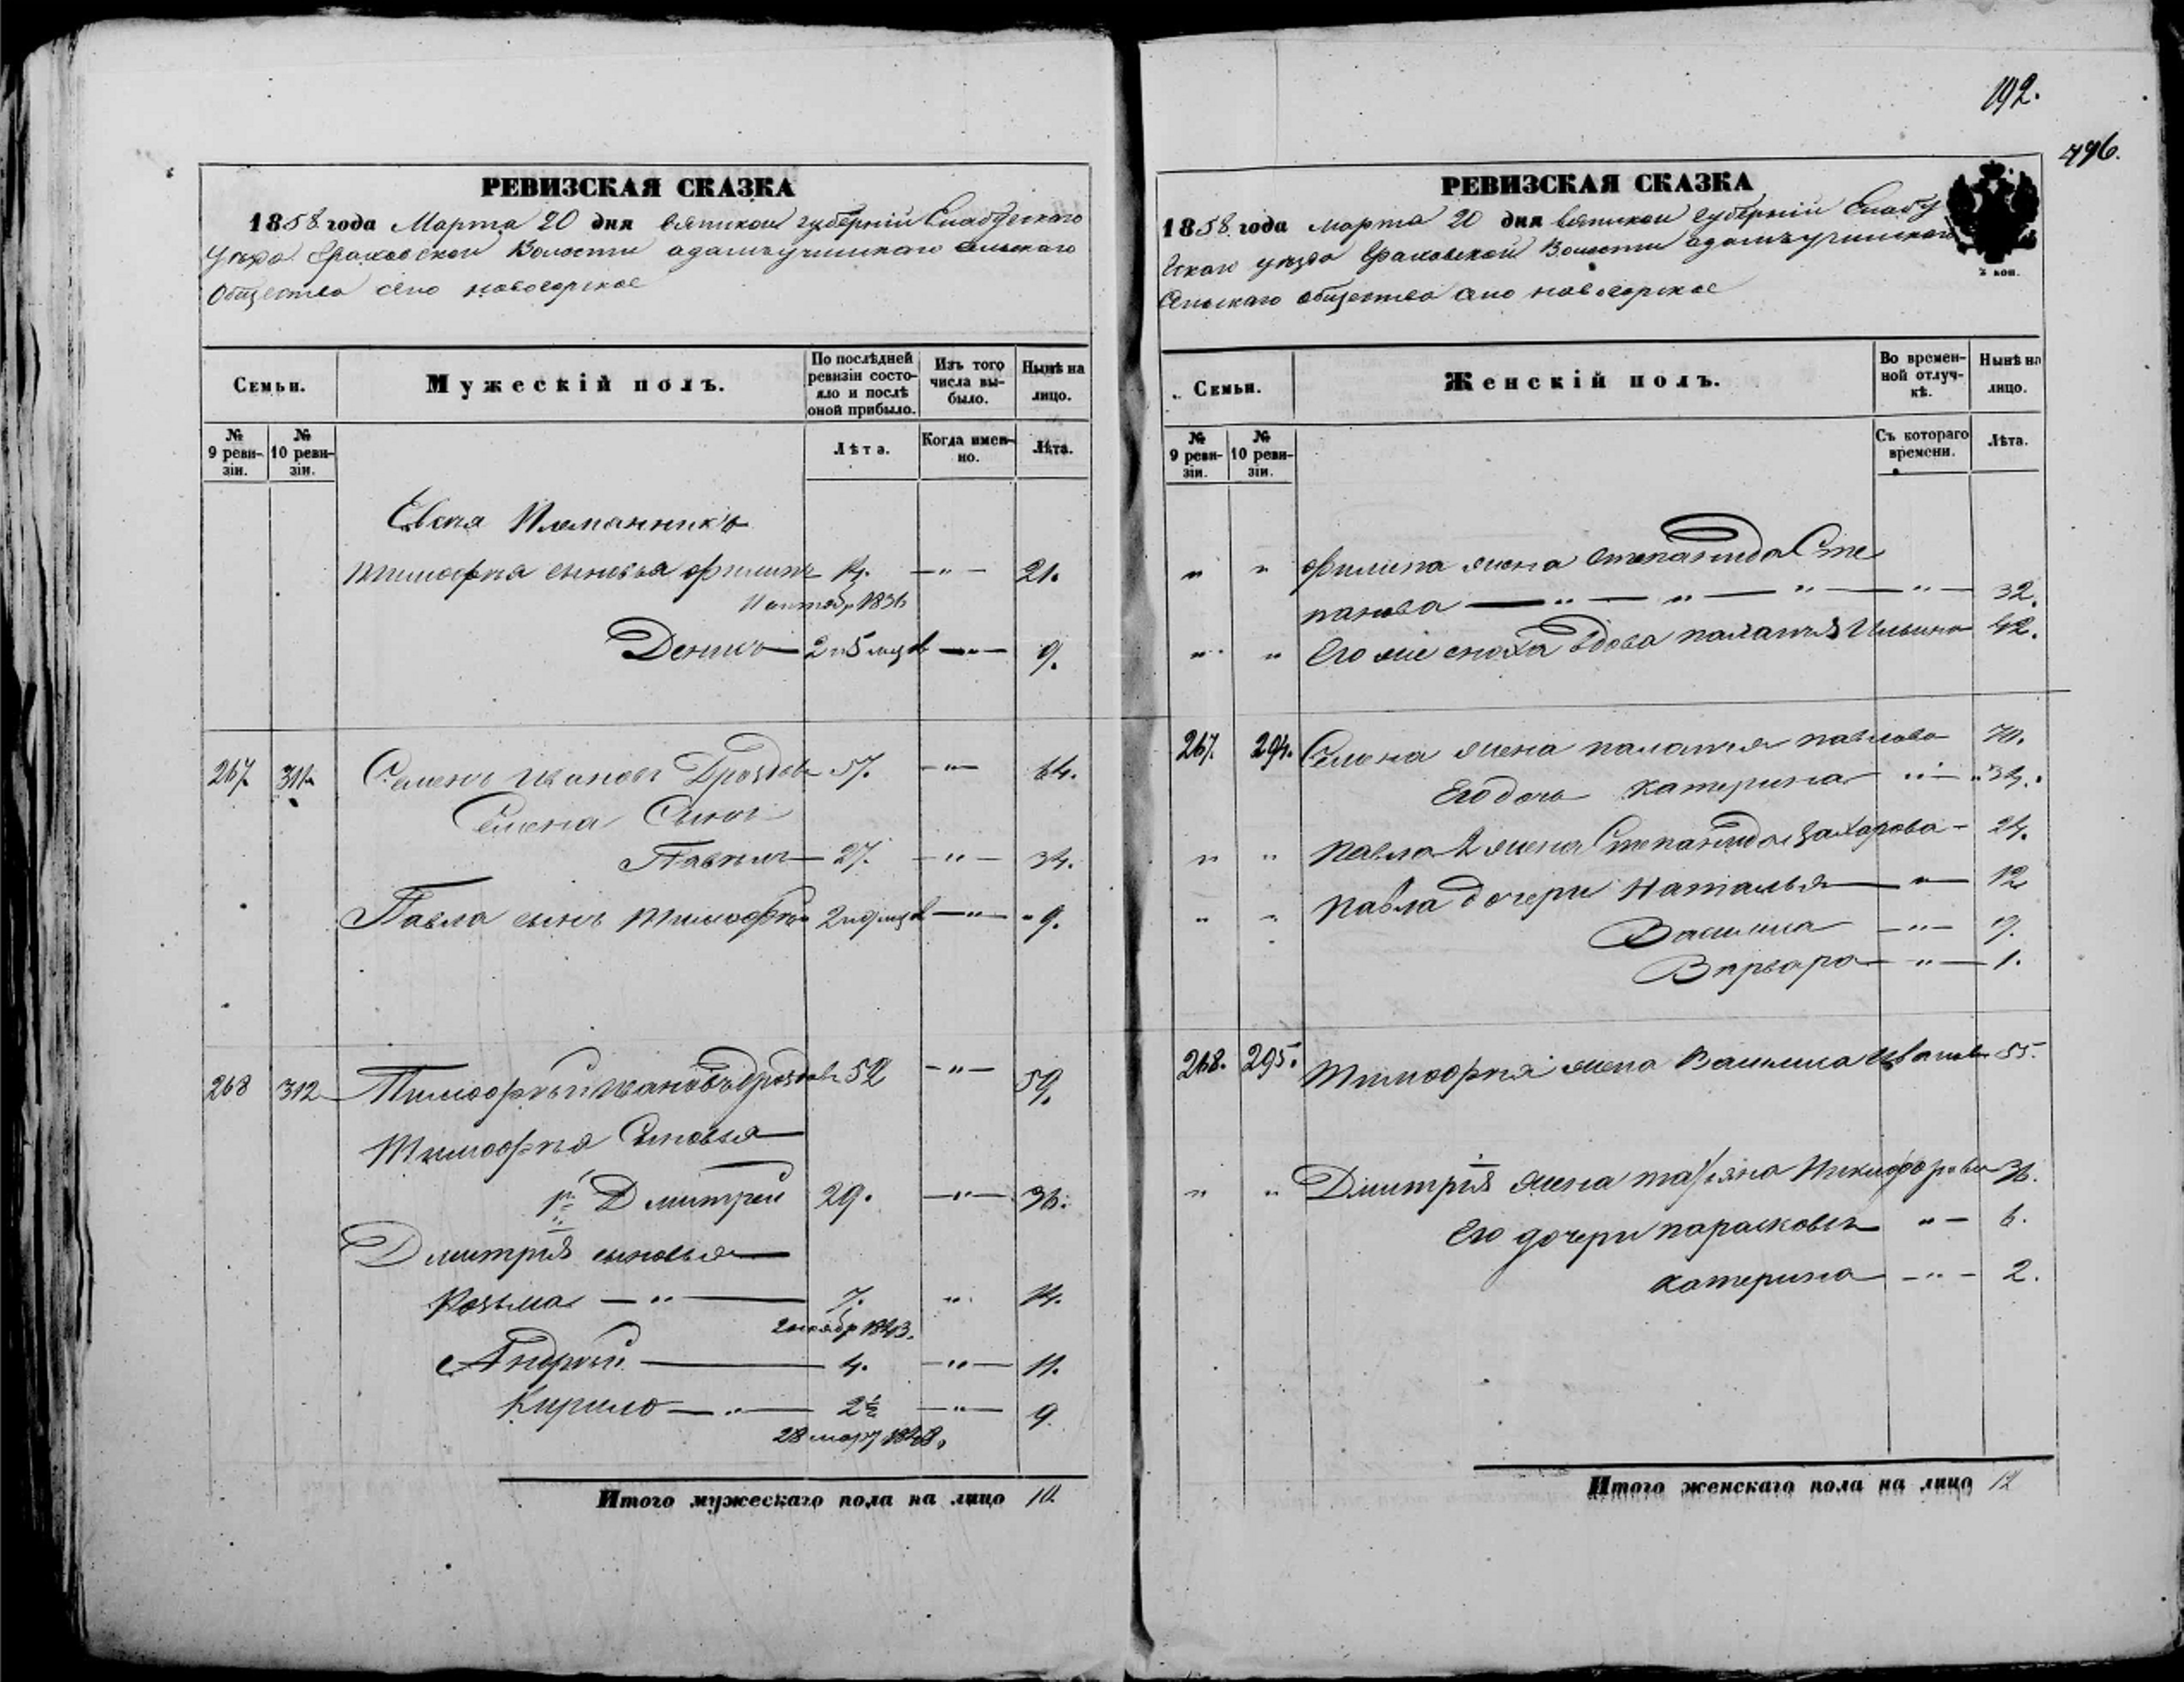 192.
496.
РЕВИЗСКАЯ СКАЗКА
1858 года Марта 20 дня вятской губернiи Елабужскаго
уезда Граховской Волости адамъучинскаго сельскаго
Общества село новогорское
Семьи.
Мужескiй полъ.
По послѣдней ревизiи состояло и послѣ оной прибыло.
Изъ того числа выбыло.
Нынѣ на лицо.
№ 9 ревизiи.
№ 10 ревизiи.
Лѣта.
Когда именно.
Лѣта.
Евсея Племянникъ
тимофея сыновья филипъ 14. —"— 21.
1836
Денисъ 2 и 5 мцъ —"— 9.
267. 311. Семенъ ивановъ Дроздовъ 57. —"— 64.
Семена Сынъ
Павелъ 27. —"— 34.
Павла сынъ тимофей 2 и 9 мцъ —"— 9.
268 312 Тимофей ивановъ Дроздовъ 52 —"— 59.
Тимофея Сыновья
1й Дмитрей 29. —"— 36.
Дмитрiя сыновья
Козьма —"— 7. " 14.
2 октябр 1843.
Андрей — 4. —"— 11.
Кирило —"— 2½ —"— 9.
28 мар 1848.
Итого мужескаго пола на лицо 10.
РЕВИЗСКАЯ СКАЗКА
1858 года марта 20 дня вятской губернiи Елабу
жскаго уезда Граховской Волости адамъучинскаго
Сельскаго общества село новогорское
2 коп.
Семьи.
Женскiй полъ.
Во временной отлучкѣ.
Нынѣ на лицо.
№ 9 ревизiи.
№ 10 ревизiи.
Съ котораго времени.
Лѣта.
" " филипа жена степанида Сте
панова —"—"—"—"— 32.
" " Его же сноха вдова палагѣя Ильина 42.
267. 294. Семена жена палагея павлова 70.
Его дочь катерина "— 34.
" " Павла 2 жена Степанида Захарова — 24.
" " Павла дочери Наталья —"— 12
Василиса —"— 9.
Варвара —"— 1.
268. 295. Тимофея жена Василиса Иванова 55.
" " Дмитрiя жена татьяна Никифорова 36.
Его дочери парасковья "— 6.
катерина —"— 2.
Итого женскаго пола на лицо 12